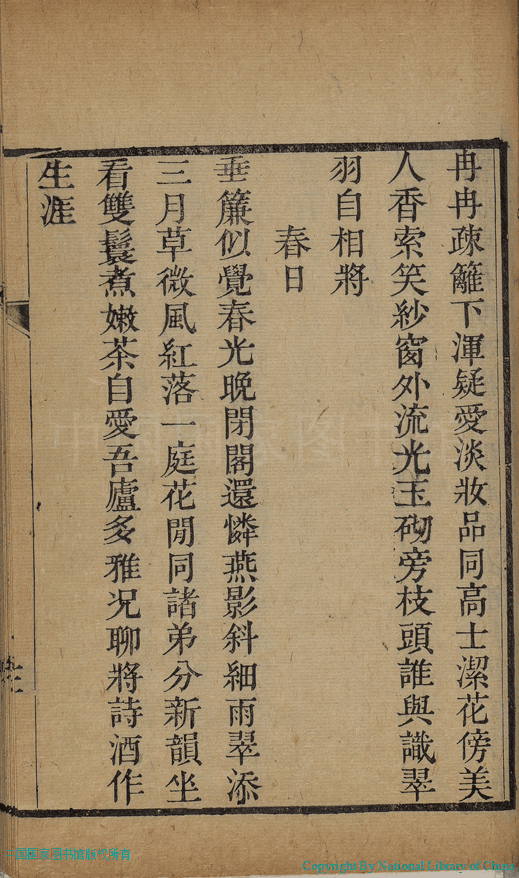 冉冉疎籬下渾疑愛淡妝品同高士潔花傍美
人香索笑紗窗外流光玉砌旁枝頭誰與識翠
羽自相將
春日
垂簾似覺春光晚閉閣還憐燕影斜細雨翠添
三月草微風紅落一庭花閒同諸弟分新韻坐
看雙鬟煮嫩茶自愛吾廬多雅況聊將詩酒作
生涯
中国国家图书馆版权所有
Copyright By National Library of China